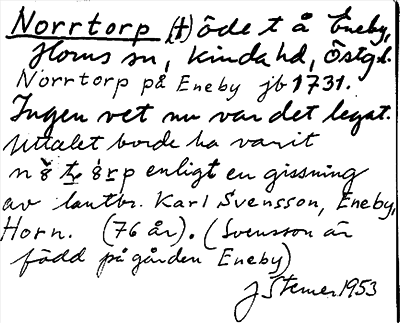 Norrtorp (t) öde t å Eneby,
Horns sn, Kinda hd, Östgl.
Norrtorp på Eneby jb 1731.
Ingen vet nu var det legat.
Uttalet borde ha varit
enligt en gissning
av lantbr. Karl Svensson, Eneby,
Horn. (76 år). (Svensson är
född på gården Eneby)
J Stemer 1953